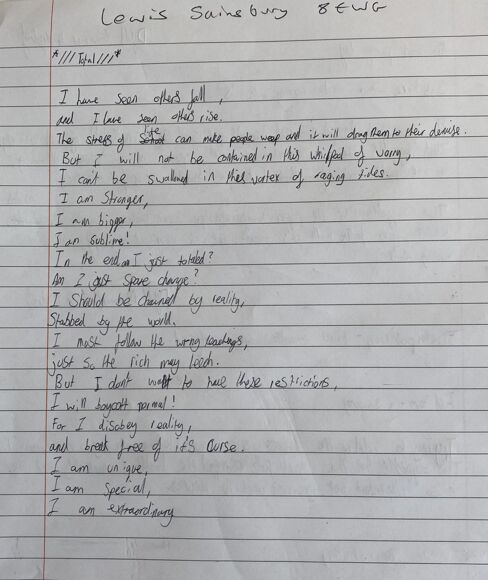 Lewis Sainsbury 8EWG
*///Total///*
I have seen others fall,
and I have seen others rise.
The stress of life can make people weep and it will drag them to their demise.
But I will not be contained in this whirlpool of worry,
I can't be swallowed in this vortex of raging tides.
I am Stronger,
I am bigger,
I am sublime!
In the end am I just totaled?
Am I just spare change?
I should be chained by reality,
Stabbed by the world.
I must follow the wrong leadings,
just so the rich may leech.
But I don't want to have these restrictions,
I will boycott normal!
For I disobey reality,
and break free of it's curse.
I am unique,
I am special,
I am extraordinary